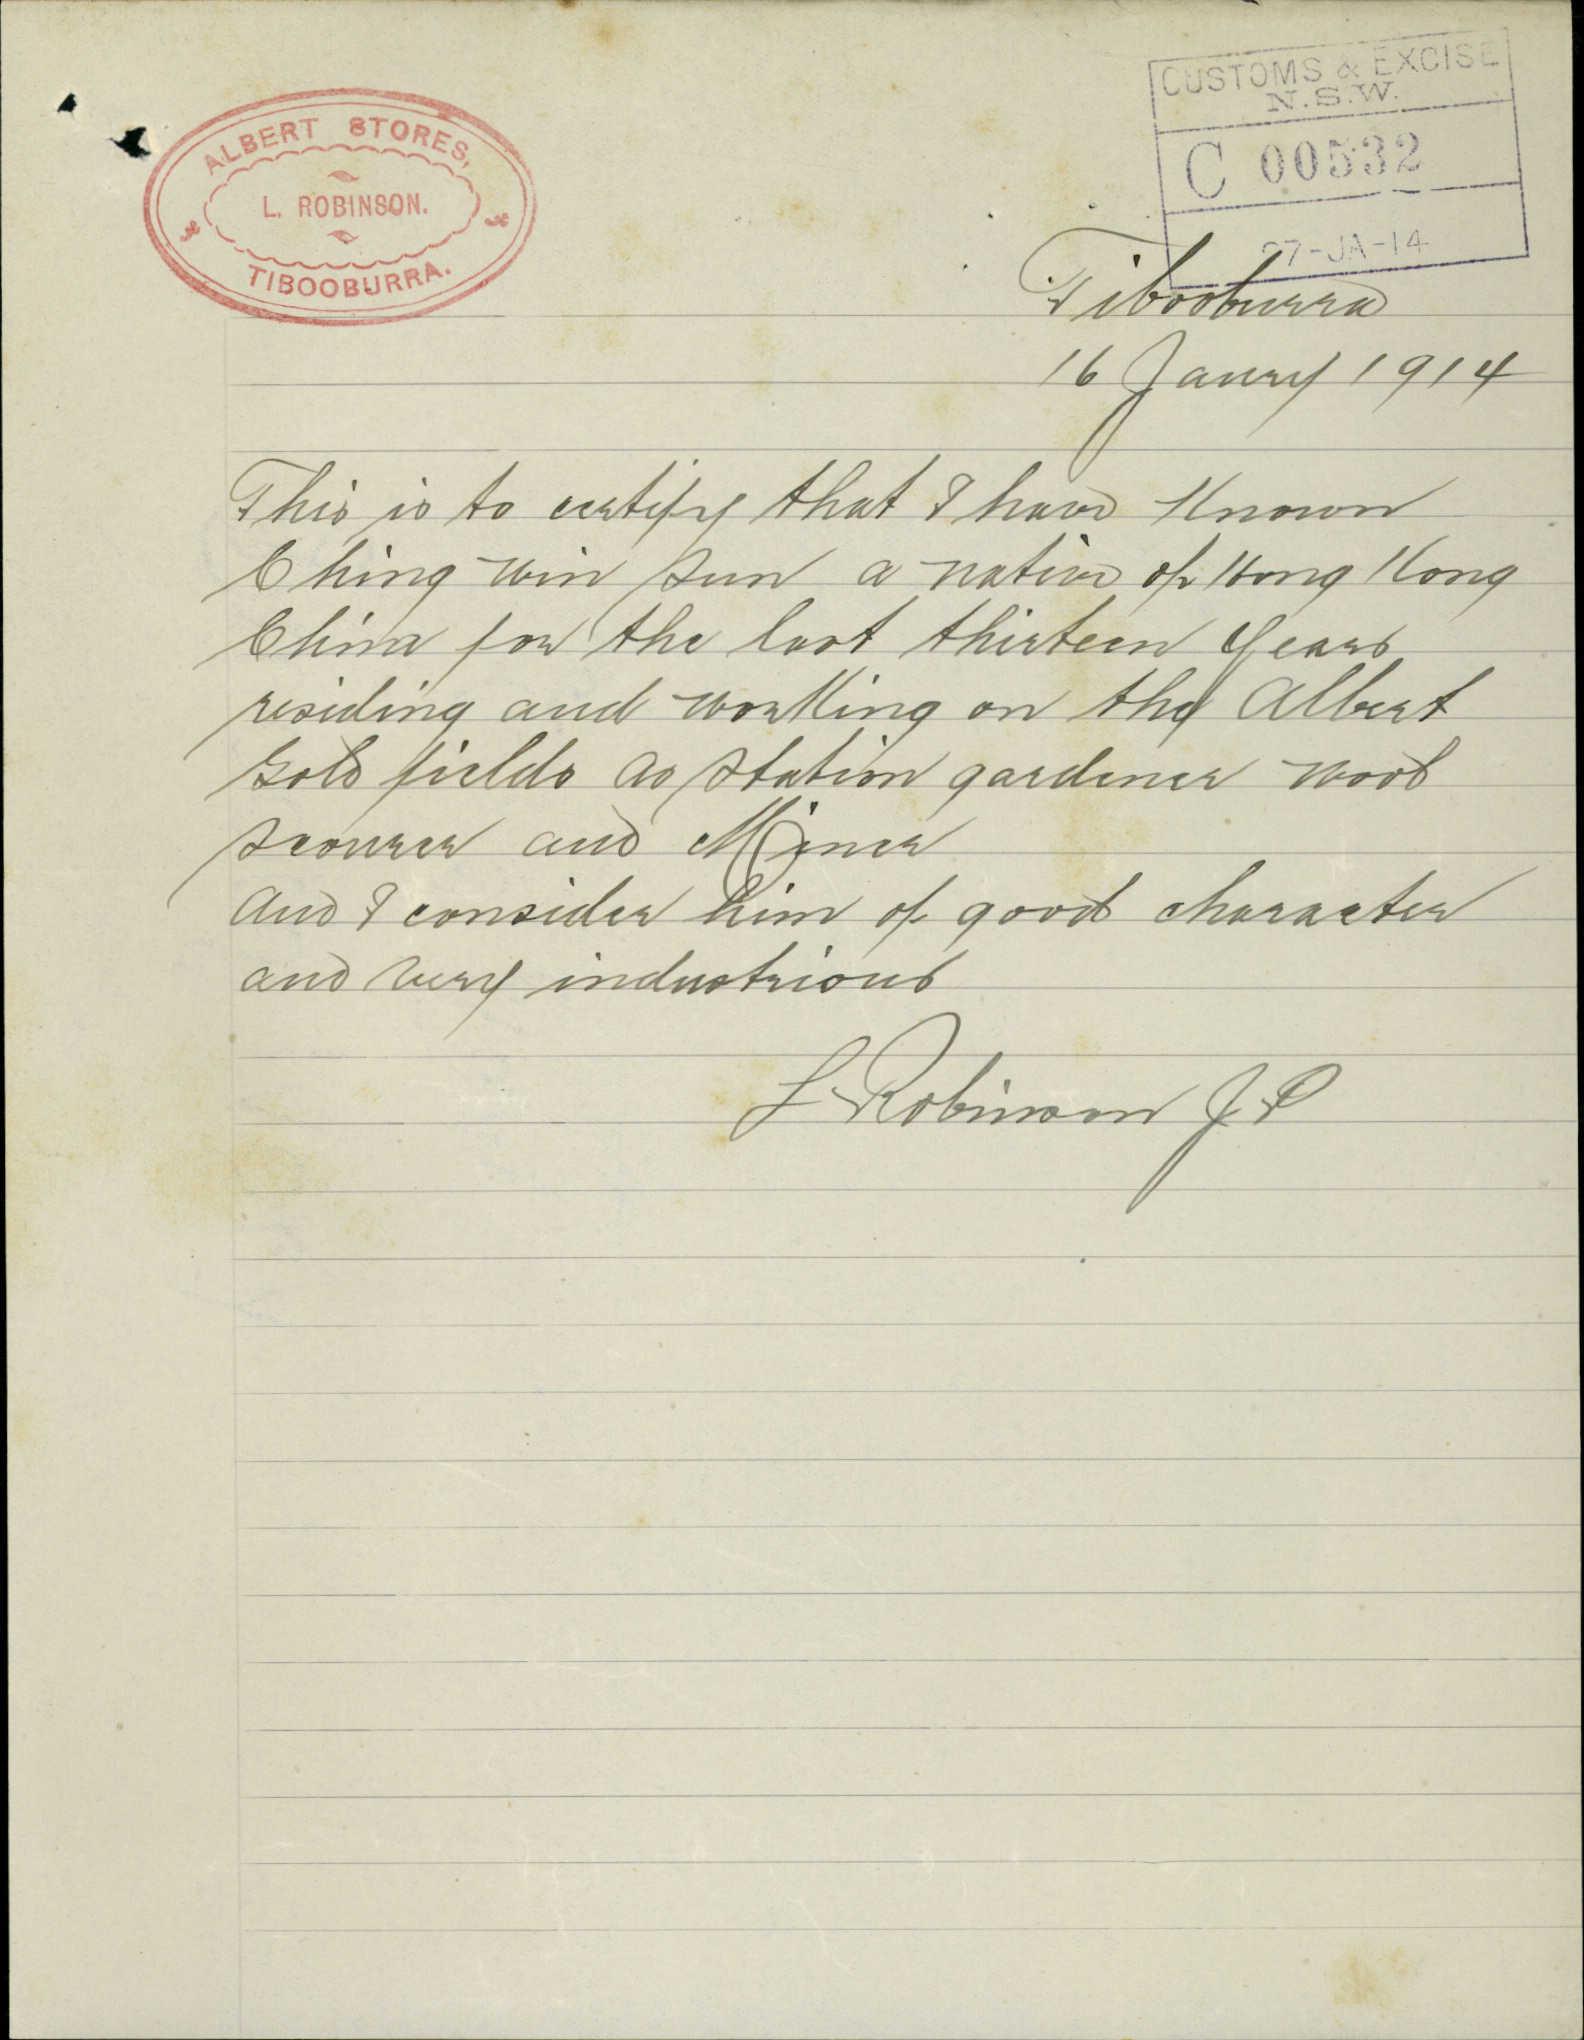 ALBERT STORES,
L. ROBINSON.
TIBOOBURRA.
CUSTOMS & EXCISE
N.S.W.
C 00532
27-JA-14
Tibooburra
16 Janry 1914
This is to certify that I have Known
Ching win Sun a native of Hong Kong
China for the last thirteen Years
residing and working on the Albert
Gold fields as Station gardener wool
scourer and Miner
And I consider him of good character
and very industrious
L Robinson J.P